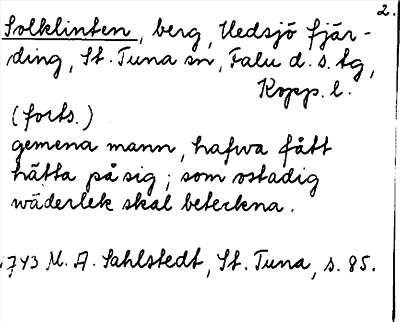 2.
Solklinten, berg, Uedsjö fjär-
ding, St. Tuna sn, Falu d. s. tg,
Kopp. l.
(forts.)
gemena mann, hafwa fått
hätta på sig; som ostadig
wäderlek skal beteckna.
743 M. A. Sahlstedt, St. Tuna, s. 85.